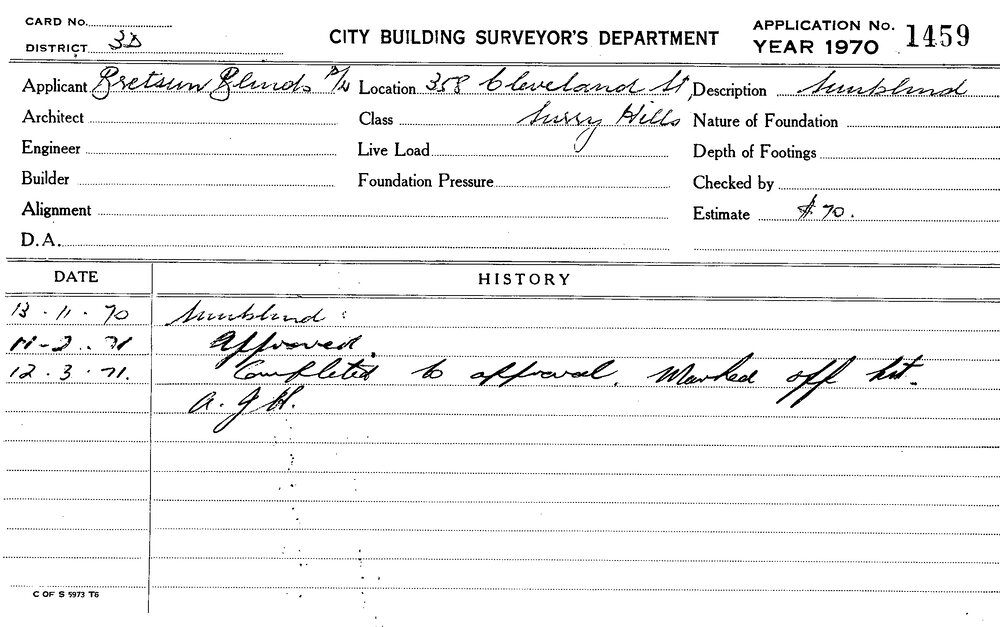 CARD No.
DISTRICT 3D
CITY BUILDING SURVEYOR'S DEPARTMENT
APPLICATION No. 1459
YEAR 1970
Applicant Bretsun Blinds P/L Location 358 Cleveland St, Description Sunblind
Architect Class Surry Hills Nature of Foundation
Engineer Live Load Depth of Footings
Builder Foundation Pressure Checked by
Alignment Estimate $70.
D.A.
DATE HISTORY
13.11.70 Sunblind:
11-2-71 Approved.
12.3.71. Completed to approval. Marked off list.
A.G.H.
C OF S 5973 T6